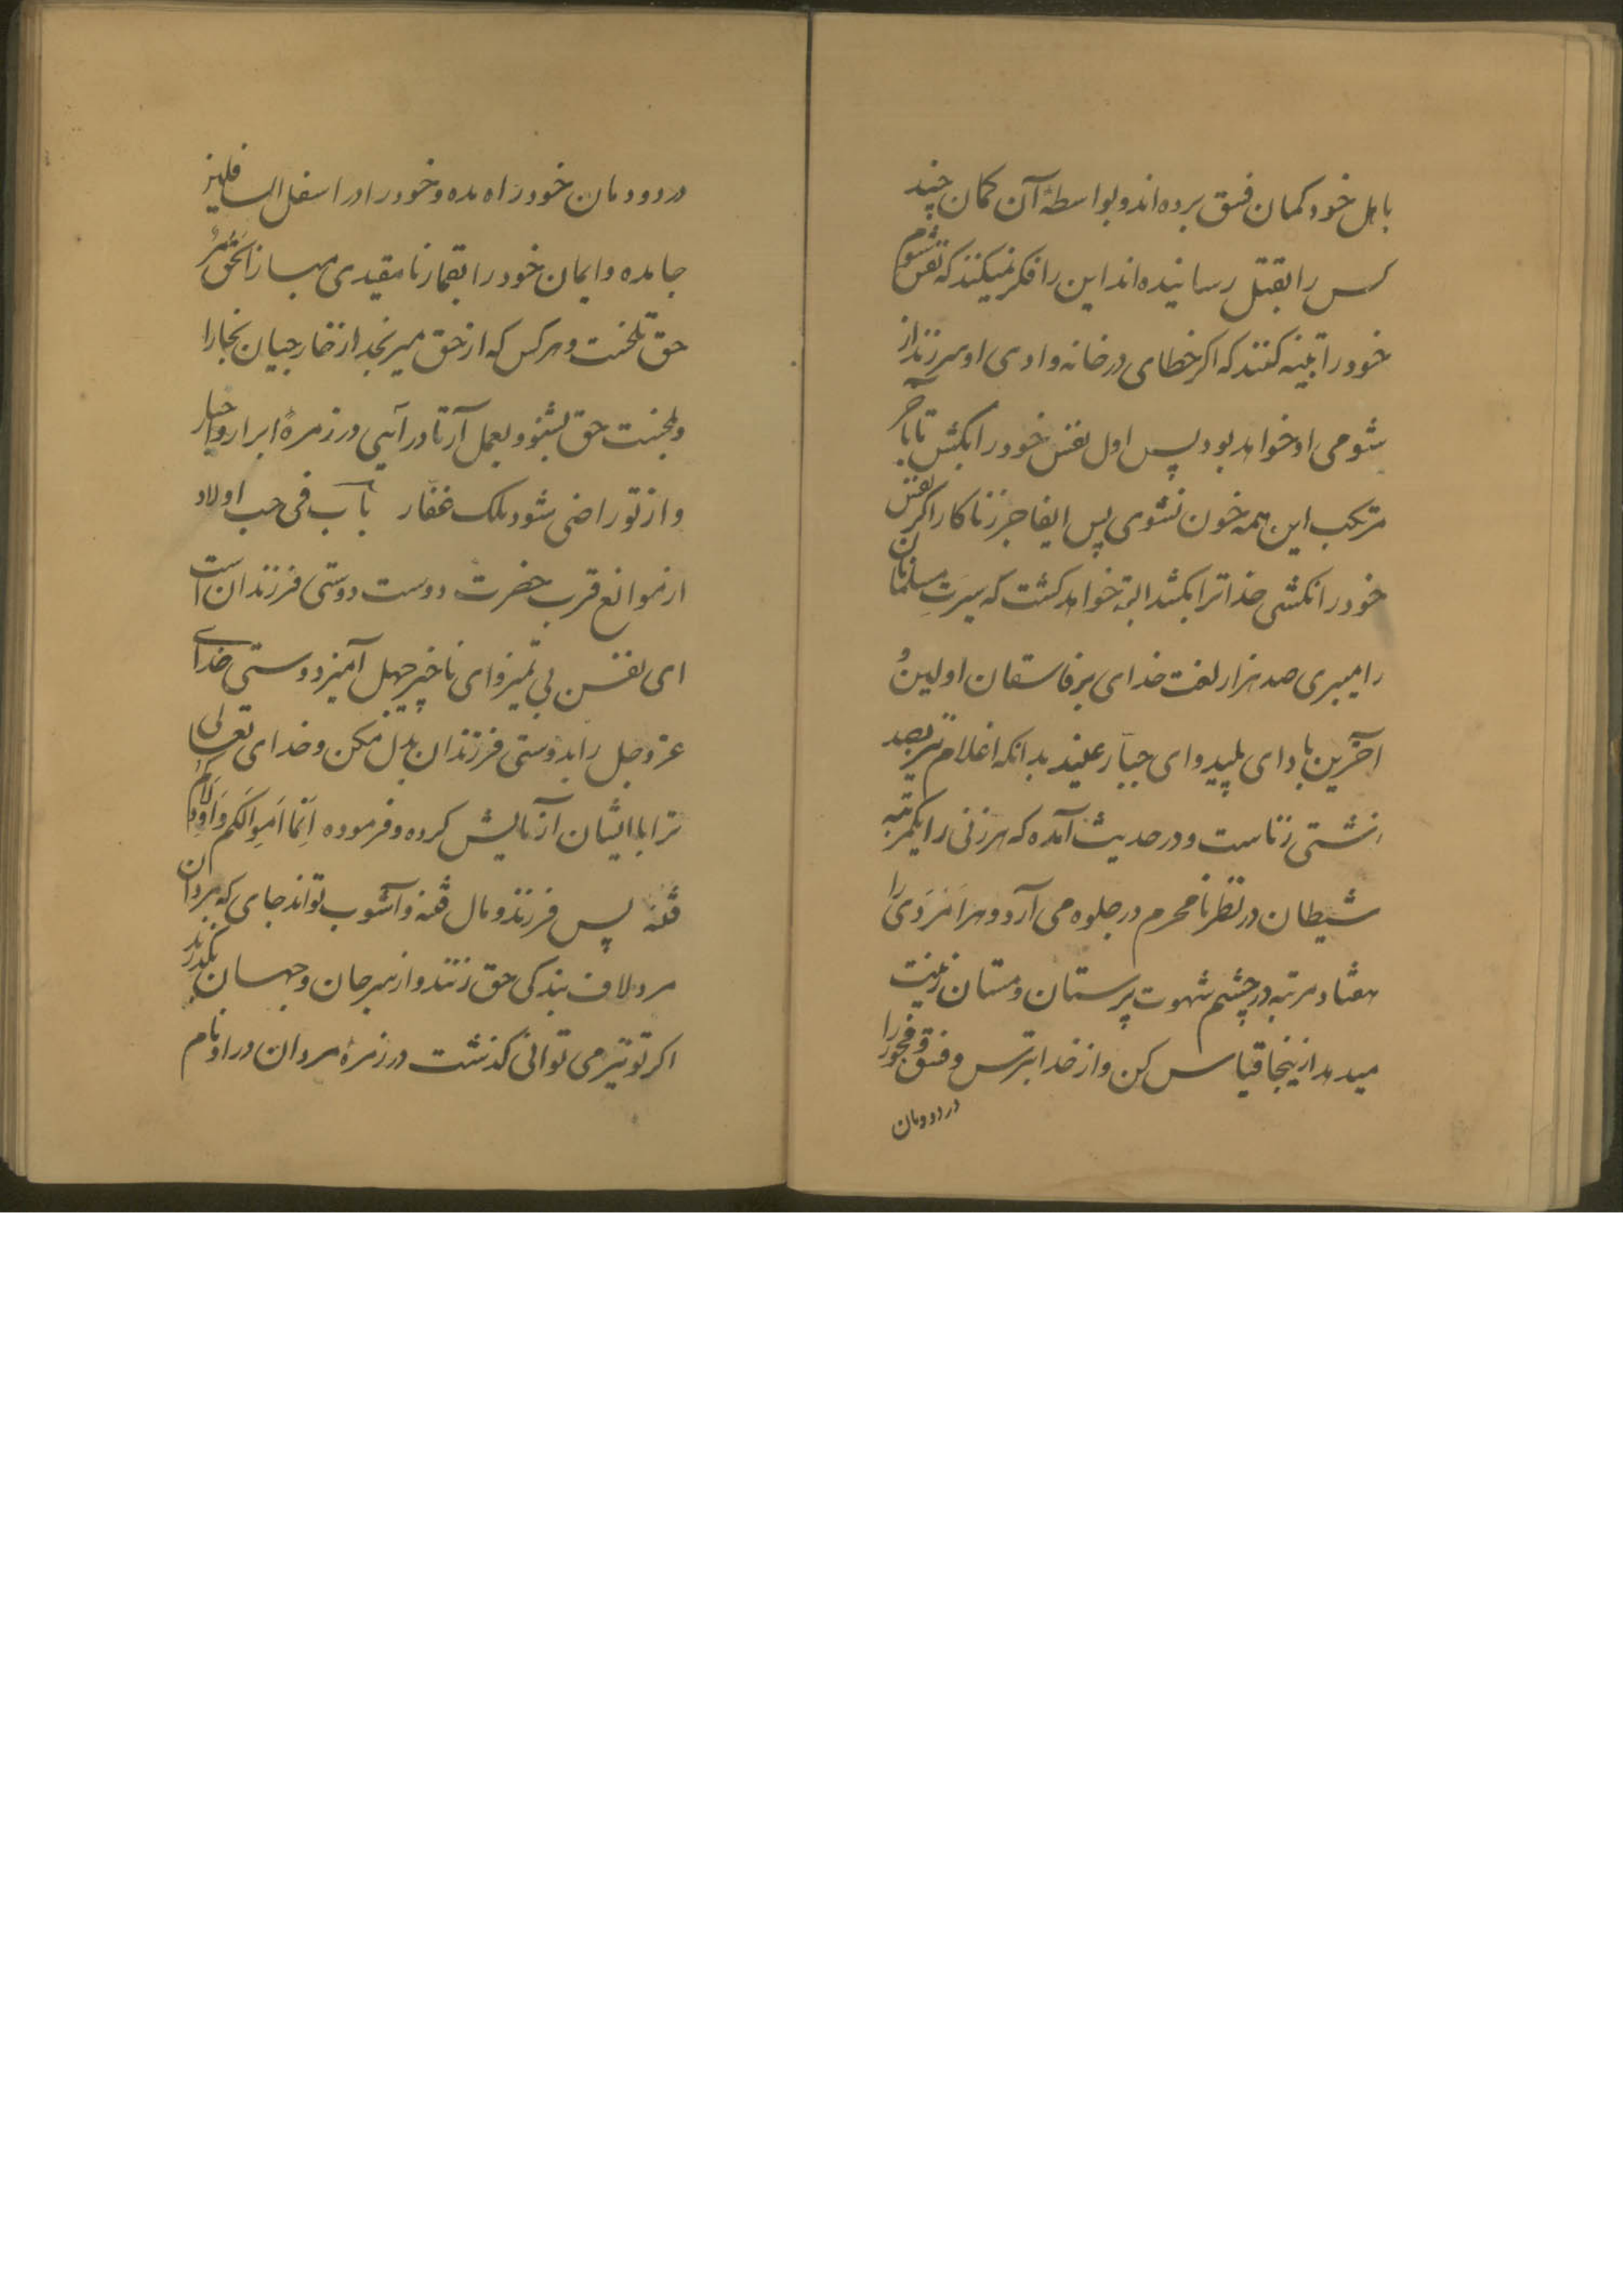 باهل خود کمان فسق برده‌اند و بواسطهٔ آن کمان چند
کس را بقتل رسانیده‌اند این را فکر نمیکنند که نفس شوم
خود را تنبیه کنند که اکر خطای در خانه وادی او سر زند از
شومی او خواهد بود پس اول نفس خود را بکش تا بآخر
مرتکب این همه خون نشوی پس ایفاجر زناکار اکر نفس
خود را نکشی خدا ترا بکشد البته خواهد کشت که سیرت مسلمانان
را میبری صد هزار لعنت خدای بر فاسقان اولین و
آخرین باد ای پلید و ای جبار عنید بدانکه اغلام نیز بصد
زشتی زناست و در حدیث آمده که هر زنی را یکمرتبه
شیطان در نظر نامحرم در جلوه می آرد و هر امردی را
هفتاد مرتبه در چشم شهوت پرستان و مستان زینت
میدهد ازینجا قیاس کن و از خدا بترس و فسق و فجور را
در دودمان
در دودمان خود راه مده و خود را در اسفل السافلین
جا مده و ایمان خود را بقمار نامقیدی مباز الحق مر
حق تلخست و هر کس که از حق میرنجد از خارجیان بخارا
و بلخست حق بشنو و بعمل آر تا در آئی در زمرهٔ ابرار و اخیار
و از تو راضی شود ملک غفار باب فی حب اولاد
از موانع قرب حضرت دوست دوستی فرزندان است
ای نفس بی تمیز و ای ناچیز جهل آمیز دوستی خدای
عز و جل را بدوستی فرزندان بدل مکن و خدای تعالی
ترا با ایشان آزمایش کرده و فرموده اَنّما اَموالَکم وَاَولادکم
فتنه پس فرزند و مال فتنه و آشوب تواند جای که مردان
مرد لاف بندکی حق زنند و از سر جان و جهان بکذرند
اکر تو نیز می توانی کذشت در زمرهٔ مردان درا و نام